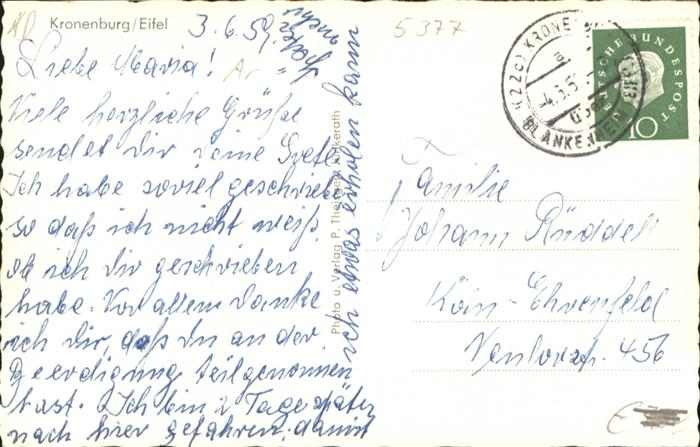 Kronenburg/Eifel
3.6.59
Liebe Maria!
Viele herzliche Grüße
sendet Dir deine
Ich habe soviel geschrieben
so daß ich nicht weiß
ob ich dir geschrieben
habe. Vor allem danke
ich Dir, daß Du an der
Beerdigung teilgenommen
hast. Ich bin 2 Tage später
nach hier gefahren, damit
ich etwas erholen kann
Photo u. Verlag P. Jünkerath
5377
(22c) KRONENBURG
BLANKENHEIM
DEUTSCHE BUNDESPOST
10
Familie
Johann Rüddel
Köln-Ehrenfeld
Venloerstr. 456